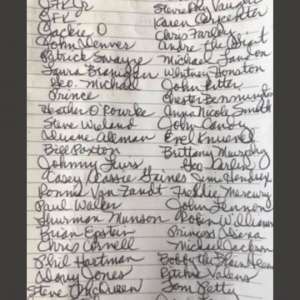 JFK Jr
JFK
Jackie O
John Denver
Patrick Swayze
Laura Branigan
Geo. Michael
Prince
Heather O'Rourke
Steve
Duane Allman
Bill Paxton
Johnny
Casey Gaines
Ronnie Van Zandt
Paul Walker
Thurman Munson
Brian Epstein
Chris Cornell
Phil Hartman
Davy Jones
Steve McQueen
Stevie Ray Vaughn
Karen Carpenter
Chris Farley
Andre the Giant
Michael Landon
Whitney Houston
John Ritter
Chester Bennington
Anna Nicole Smith
John Candy
Evel Knievel
Brittany Murphy
Geo Carlin Jimi Hendrix
Freddie Mercury
John Lennon
Robin Williams
Princess Diana
Michael Jackson
Bobby the Brain Heenan
Ritchie Valens
Tom Petty